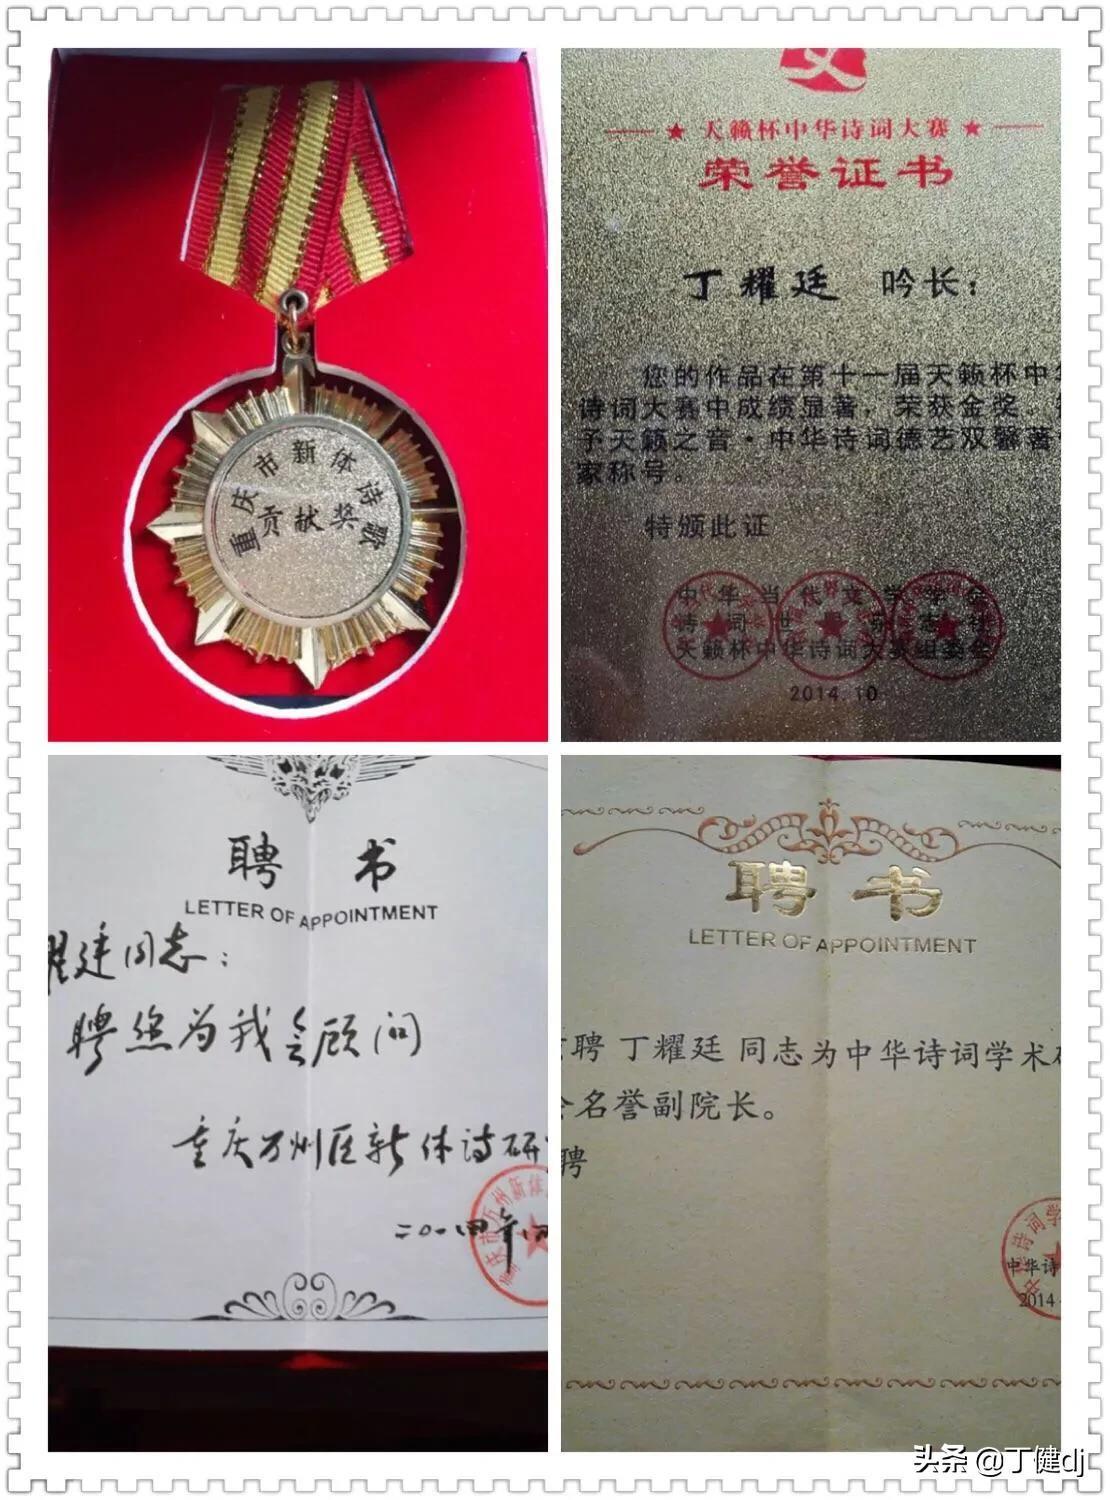 重庆市新体诗歌
贡献奖
天籁杯中华诗词大赛
荣誉证书
丁耀廷 吟长：
您的作品在第十一届天籁杯中华
诗词大赛中成绩显著，荣获金奖。
予天籁之音·中华诗词德艺双馨著
家称号。
特颁此证
中华当代文学学会
诗词世界杂志社
天籁杯中华诗词大赛组委会
2014.10
聘书
LETTER OF APPOINTMENT
耀廷同志：
聘您为我会顾问
重庆万州区新体诗研
重庆市万州新体
二〇一四年
聘书
LETTER OF APPOINTMENT
聘 丁耀廷 同志为中华诗词学术
会名誉副院长。
聘
中华诗词学
中华诗
2014
头条 @丁健dj